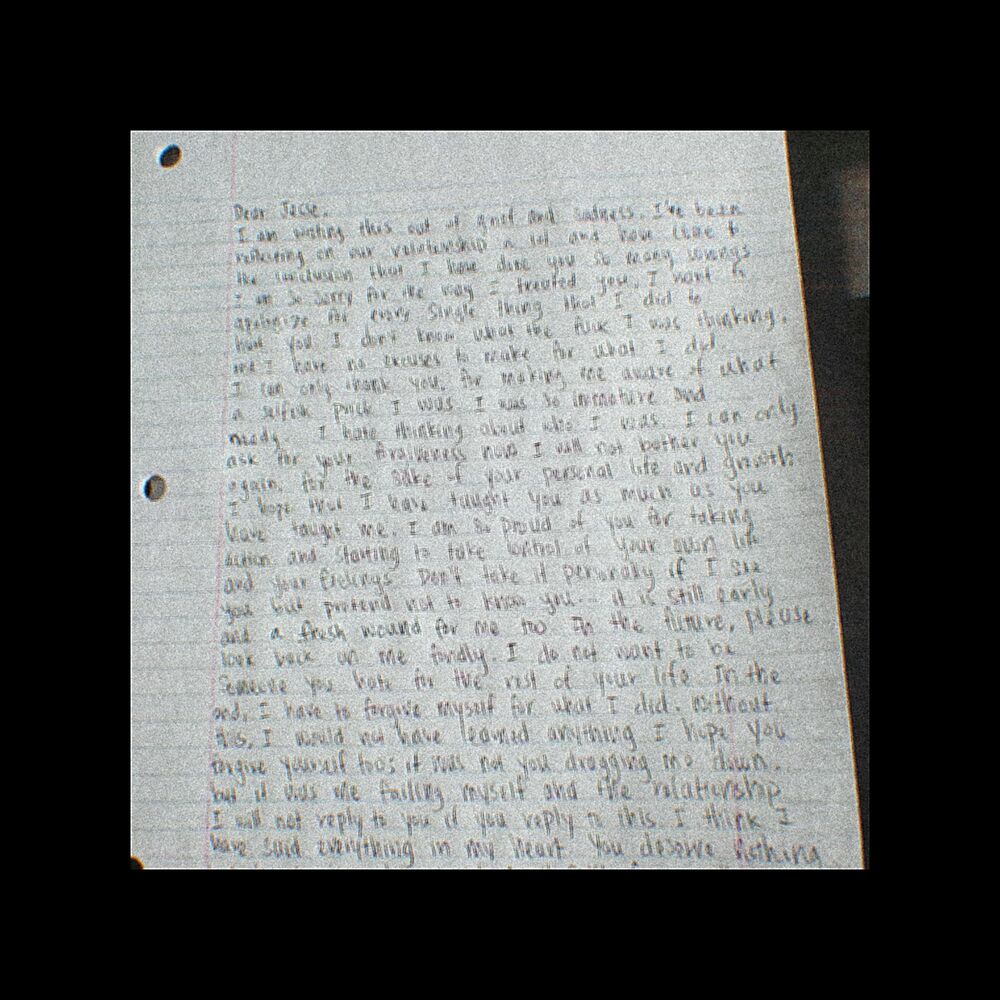 Dear Jesse,
I am writing this out of grief and sadness. I've been
reflecting on our relationship a lot and have come to
the conclusion that I have done you so many wrongs
I am so sorry for the way I treated you. I want to
apologize for every single thing that I did to
hurt you I don't know what the fuck I was thinking.
I have no excuses to make for what I did
I can only thank you, for making me aware of what
a selfish prick I was. I was so immature and
needy. I hate thinking about who I was. I can only
ask for your forgiveness now I will not bother you
again, for the sake of your personal life and growth.
I hope that I have taught you as much as you
have taught me. I am so proud of you for taking
action and starting to take control of your own life
and your feelings. Don't take it personally if I see
you but pretend not to know you... it is still early
and a fresh wound for me too In the future, please
look back on me fondly. I do not want to be
someone you hate for the rest of your life In the
end, I have to forgive myself for what I did. Without
this, I would not have learned anything I hope you
forgive yourself too; it was not you dragging me down.
but it was me failing myself and the relationship
I will not reply to you if you reply to this. I think I
have said everything in my heart You deserve nothing